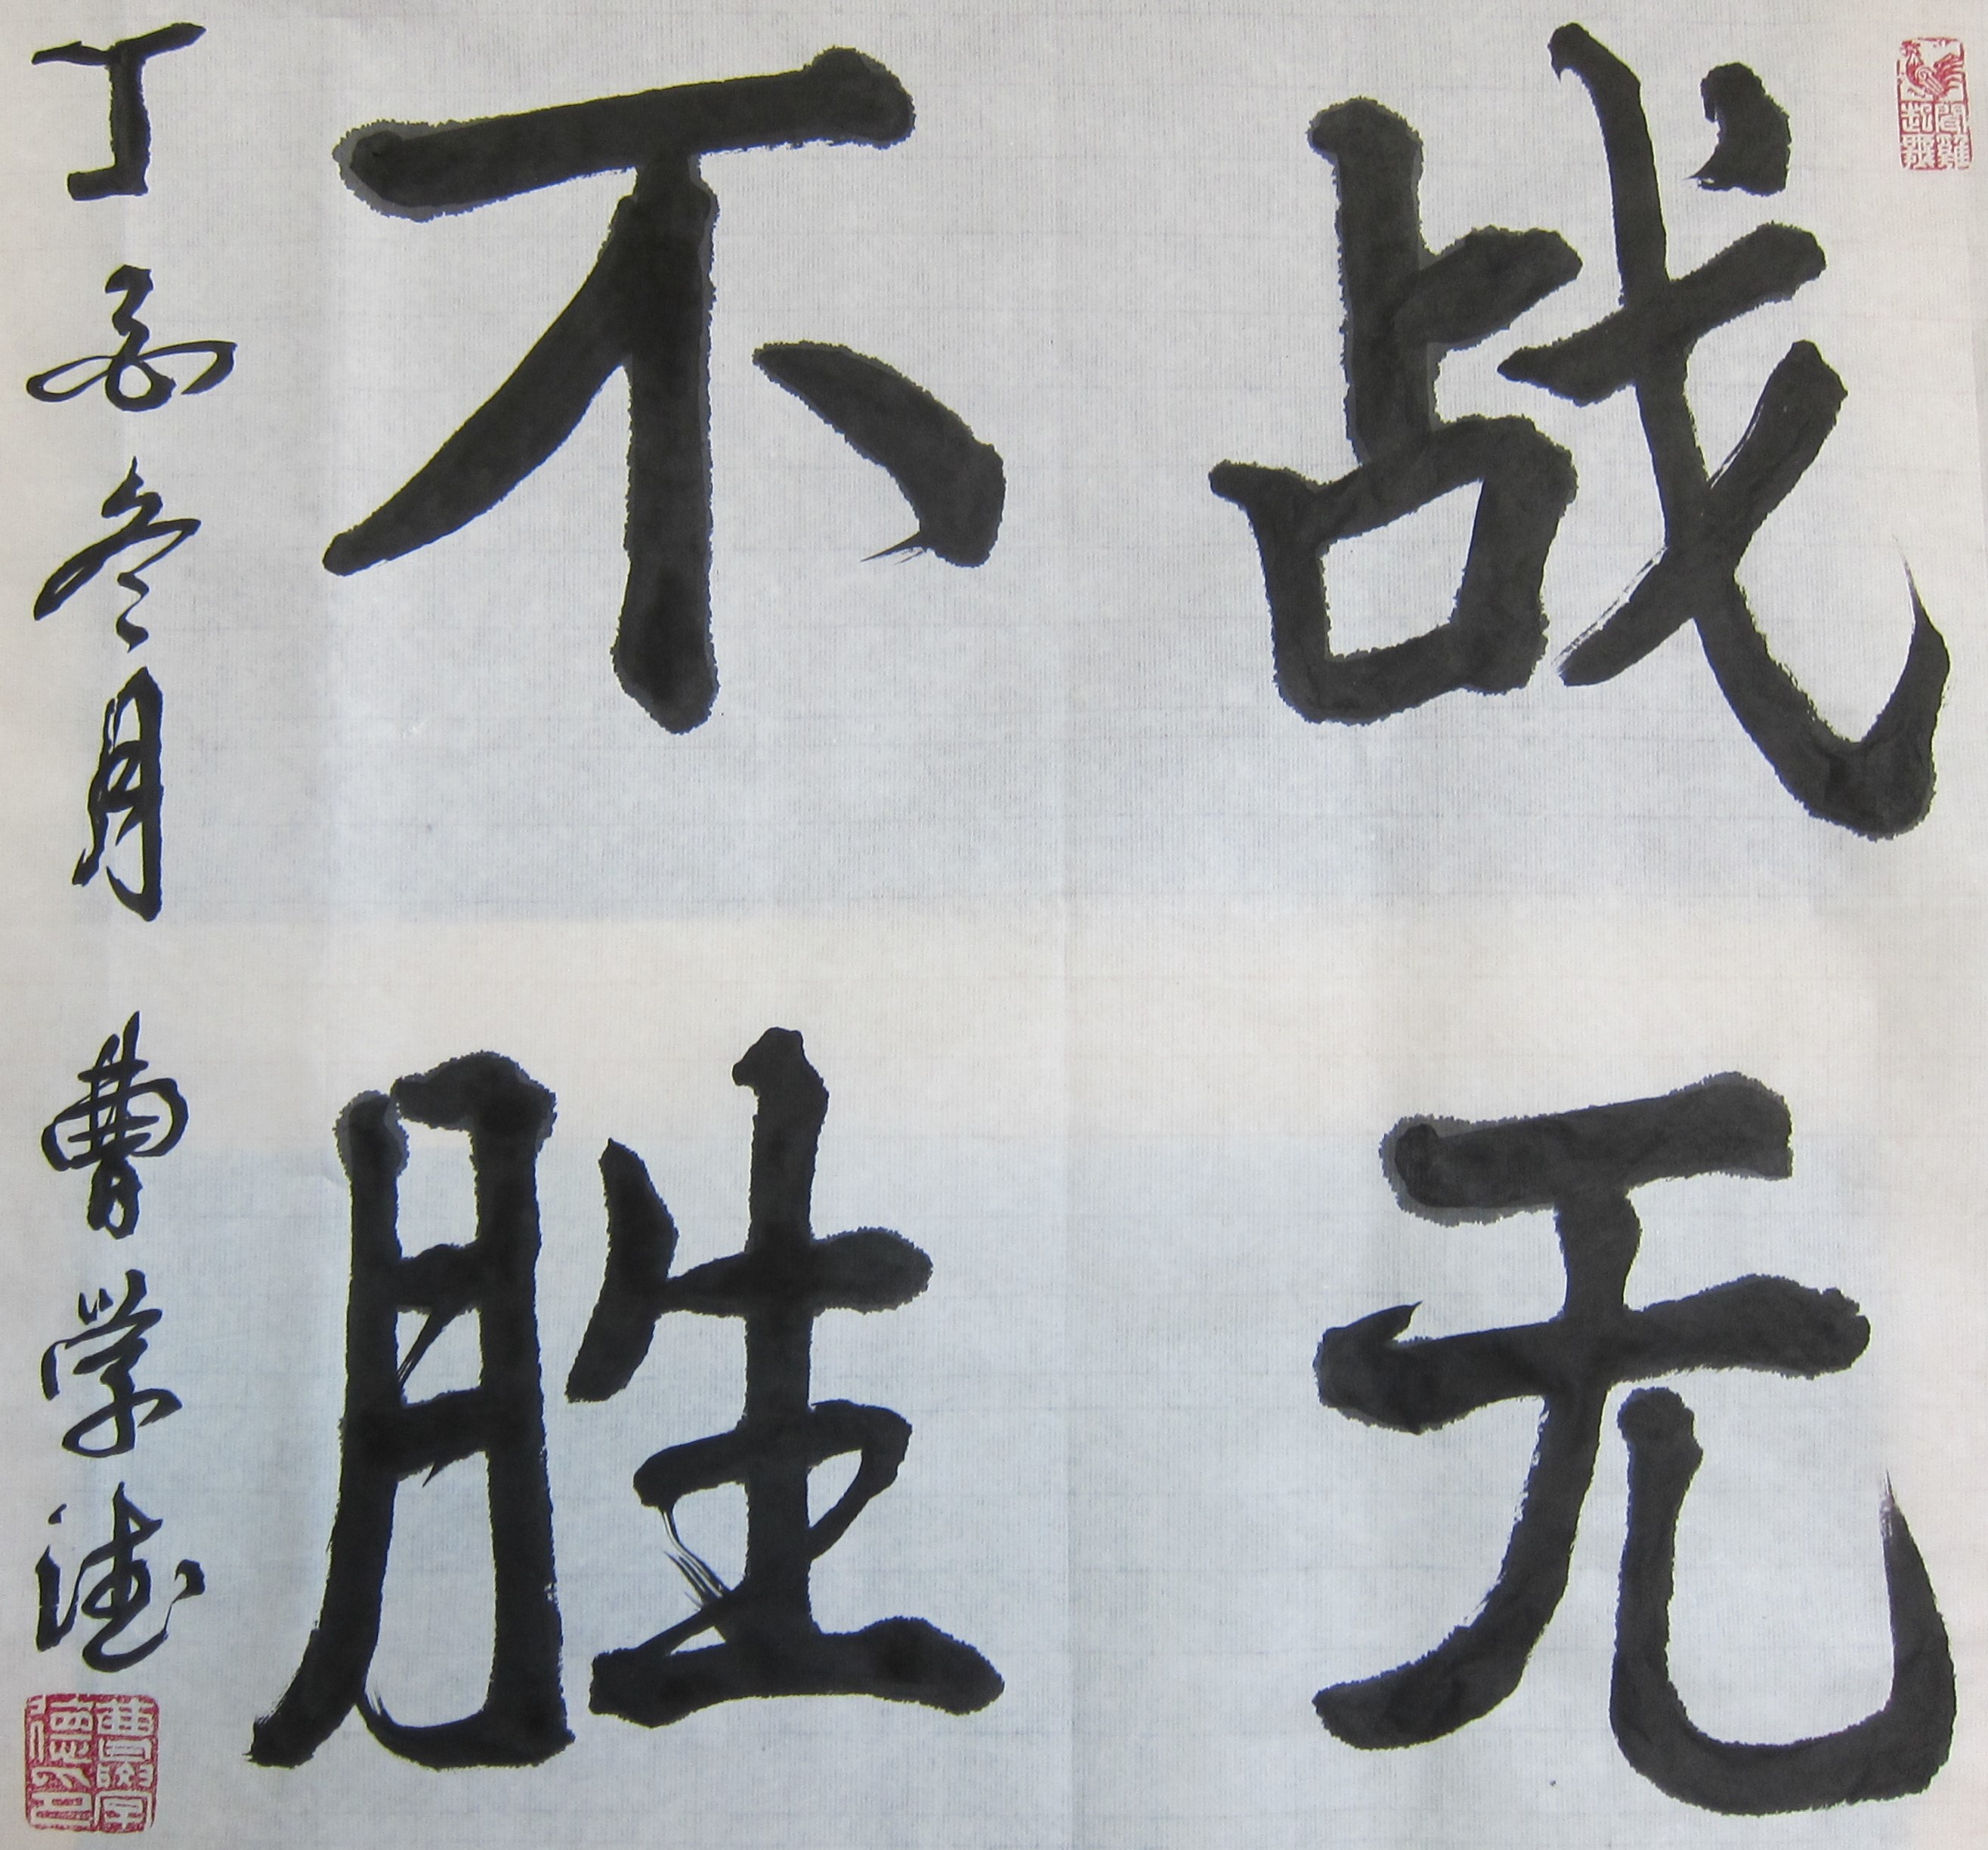 聞雞起舞
战无
不胜
丁酉冬月 曹学德
曹學德印